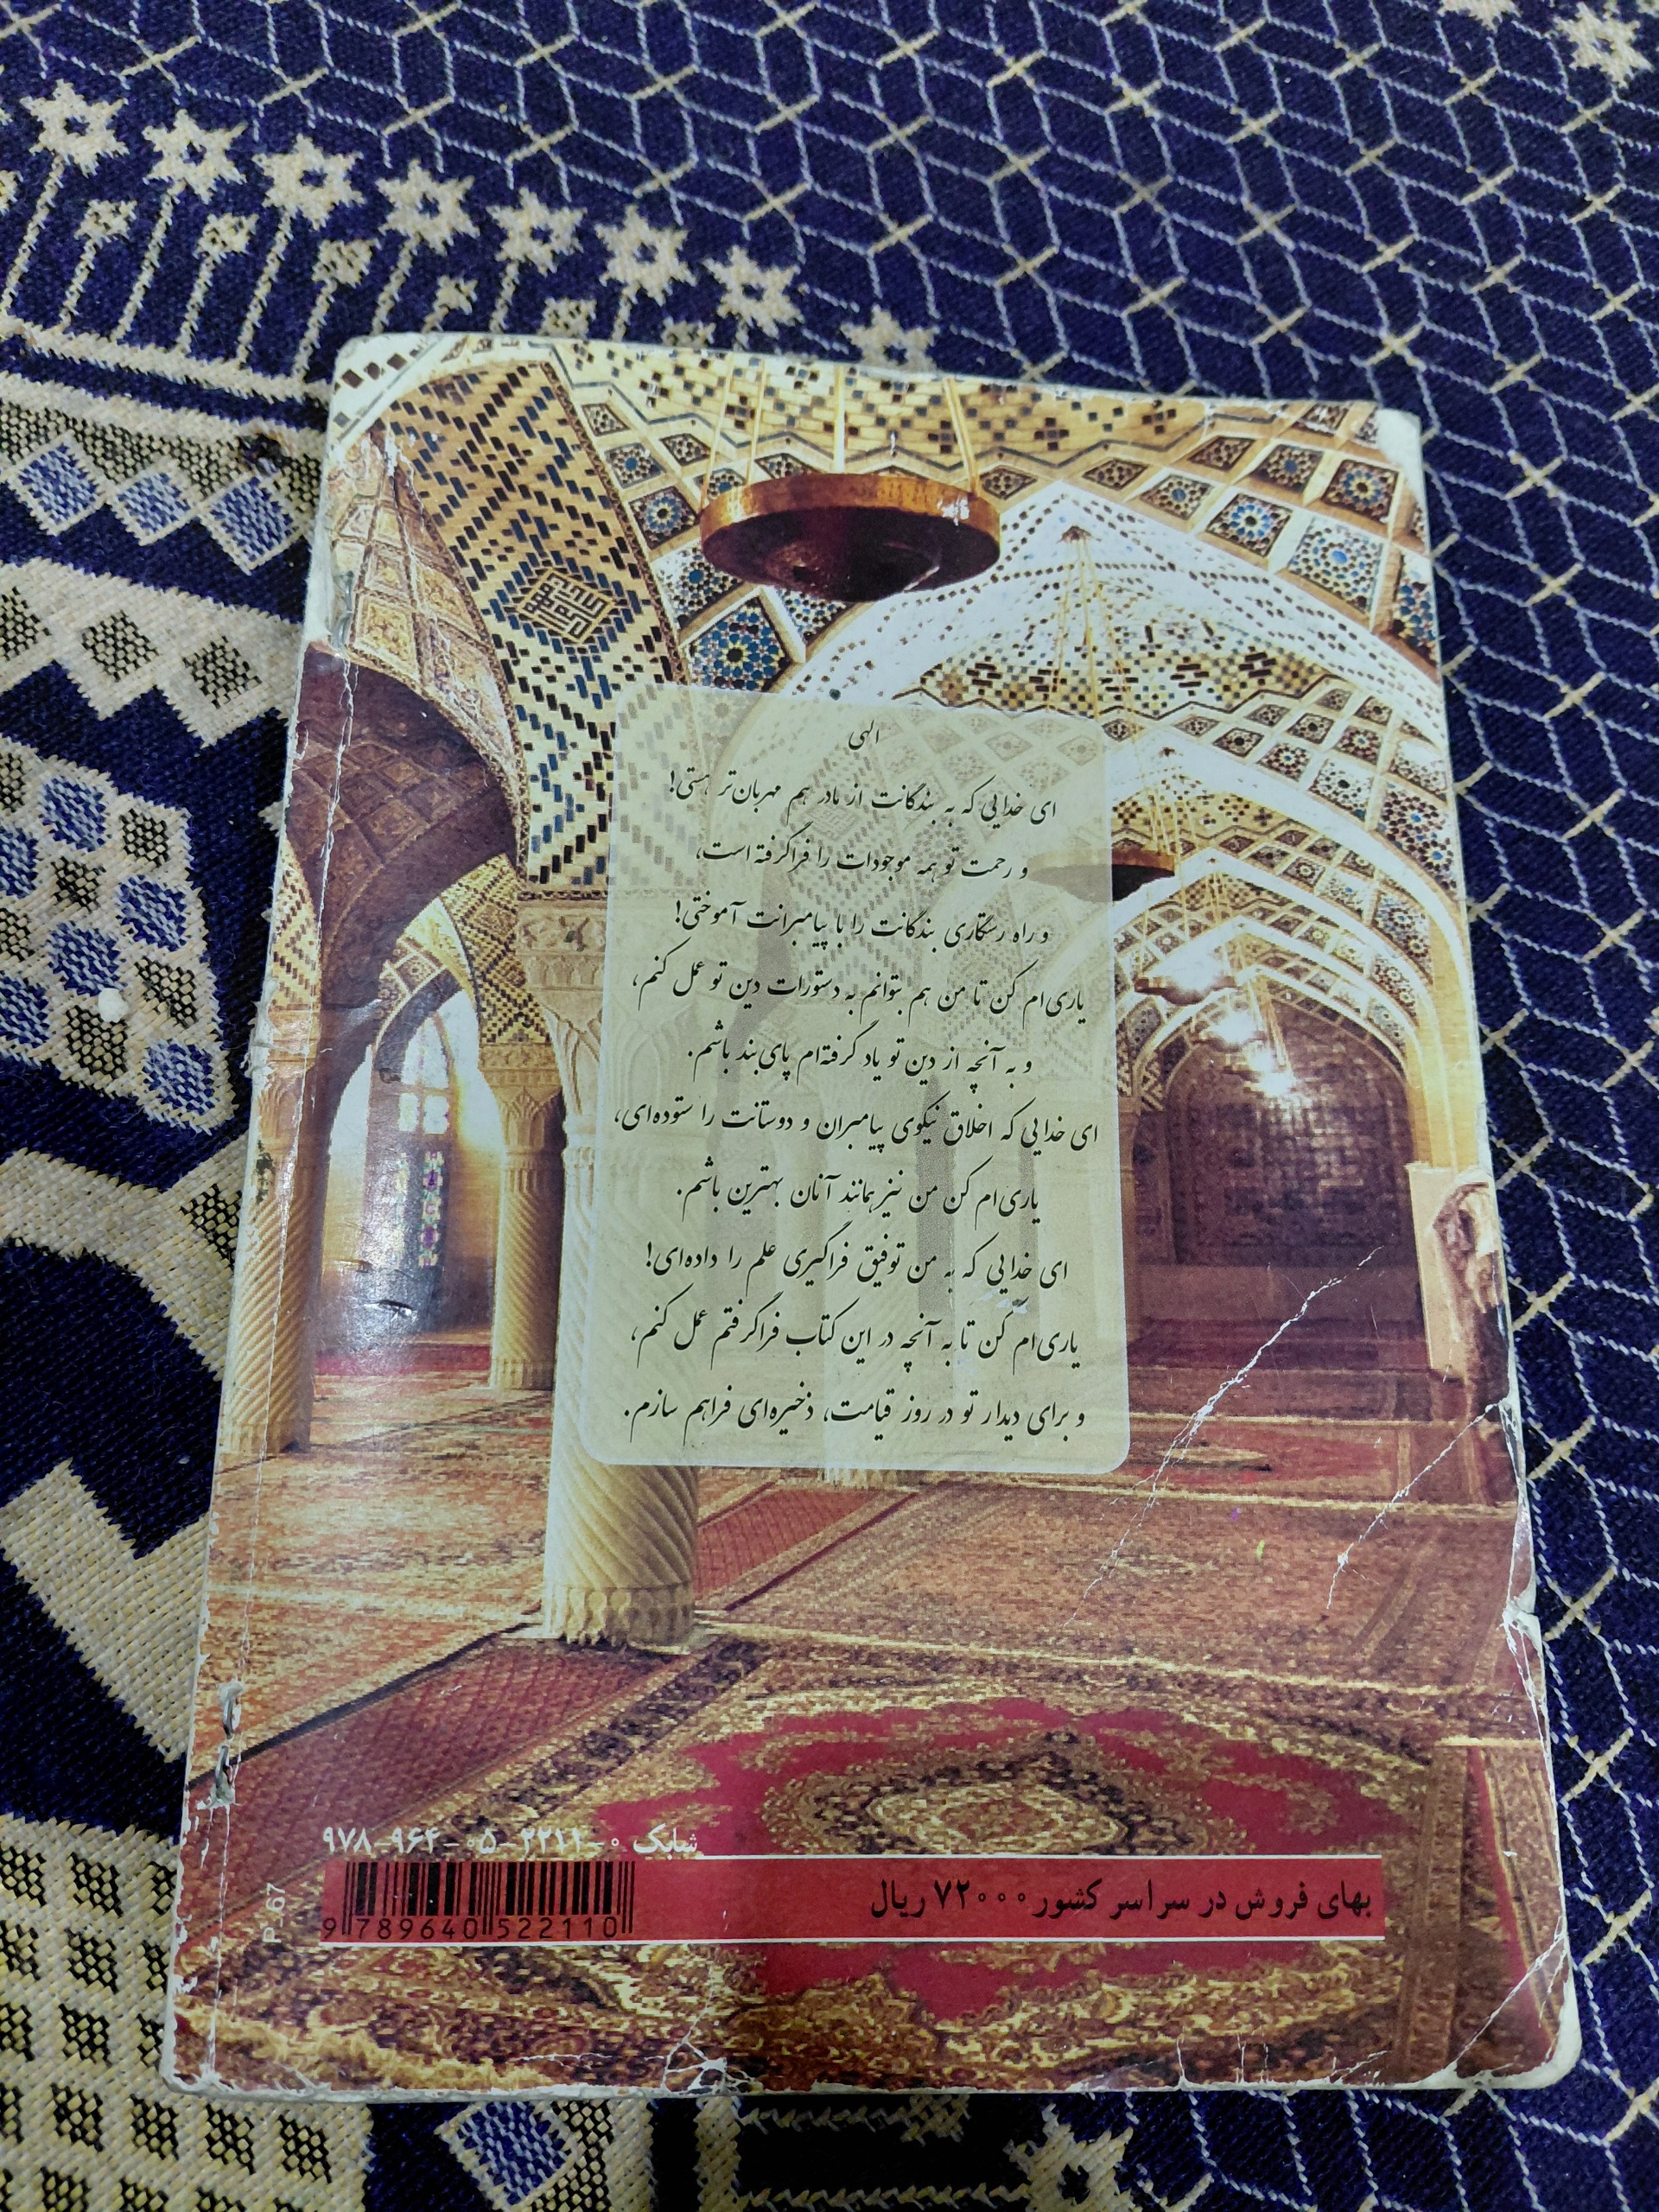 الهی
ای خدایی که به بندگانت از مادر هم مهربان‌تر هستی!
و رحمت تو همه موجودات را فراگرفته است،
و راه رستگاری بندگانت را با پیامبرانت آموختی!
یاری‌ام کن تا من هم بتوانم به دستورات دین تو عمل کنم،
و به آنچه از دین تو یاد گرفته‌ام پای‌بند باشم.
ای خدایی که اخلاق نیکوی پیامبران و دوستانت را ستوده‌ای،
یاری‌ام کن من نیز همانند آنان بهترین باشم.
ای خدایی که به من توفیق فراگیری علم را داده‌ای!
یاری‌ام کن تا به آنچه در این کتاب فراگرفتم عمل کنم،
و برای دیدار تو در روز قیامت، ذخیره‌ای فراهم سازم.
شابک ۰-۲۲۱۱-۰۵-۹۶۴-۹۷۸
بهای فروش در سراسر کشور ۷۲۰۰۰ ریال
9 789640 522110
P-67